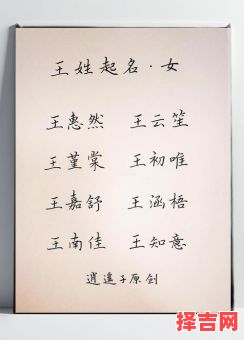 王姓起名·女
王惠然 王云笙
王堇棠 王初唯
王嘉舒 王涵梧
王南佳 王知意
逍遥子原创
择吉网